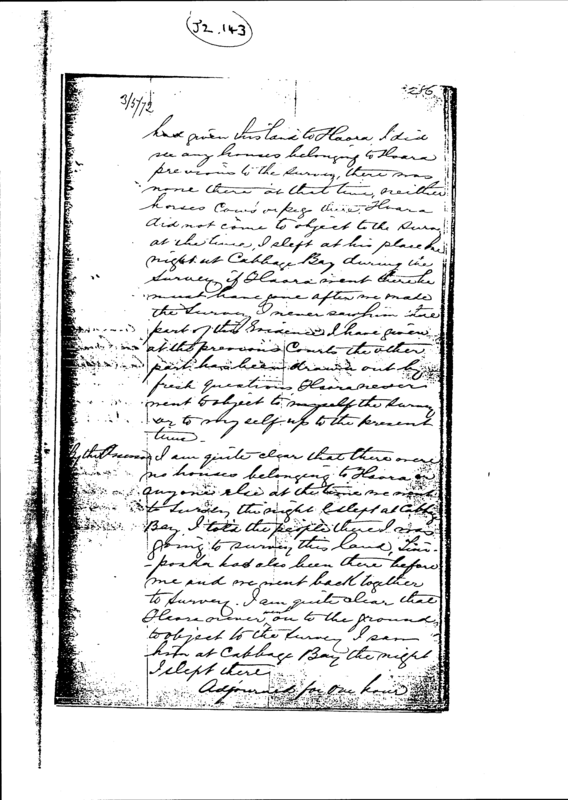 J2.143
286
3/5/72
had given this land to Haora I did
see any houses belonging to Haora
previous to the survey, there was
none there at that time, neither
horses Cows or pigs there. Haora
did not come to object to the Survey
at the time, I slept at his place the
night at Cabbage Bay during the
Survey, if Haora went there he
must have gone after we made
the Survey I never saw him there
part of this Evidence I have given
at the previous Courts the other
part has been drawn out by
fresh questions Haora never
went to object to myself the Survey
or to myself up to the present
time.
By the Assessor I am quite clear that there were
no houses belonging to Haora or
anyone else at the time we went
to Survey the night I slept at Cabbage
Bay, I told the people there I was
going to survey this land,
-poaka had also been there before
me and we went back together
to Survey. I am quite clear that
Haora never went on to the ground
to object to the Survey I saw
him at Cabbage Bay the night
I slept there
Adjourned for One hour